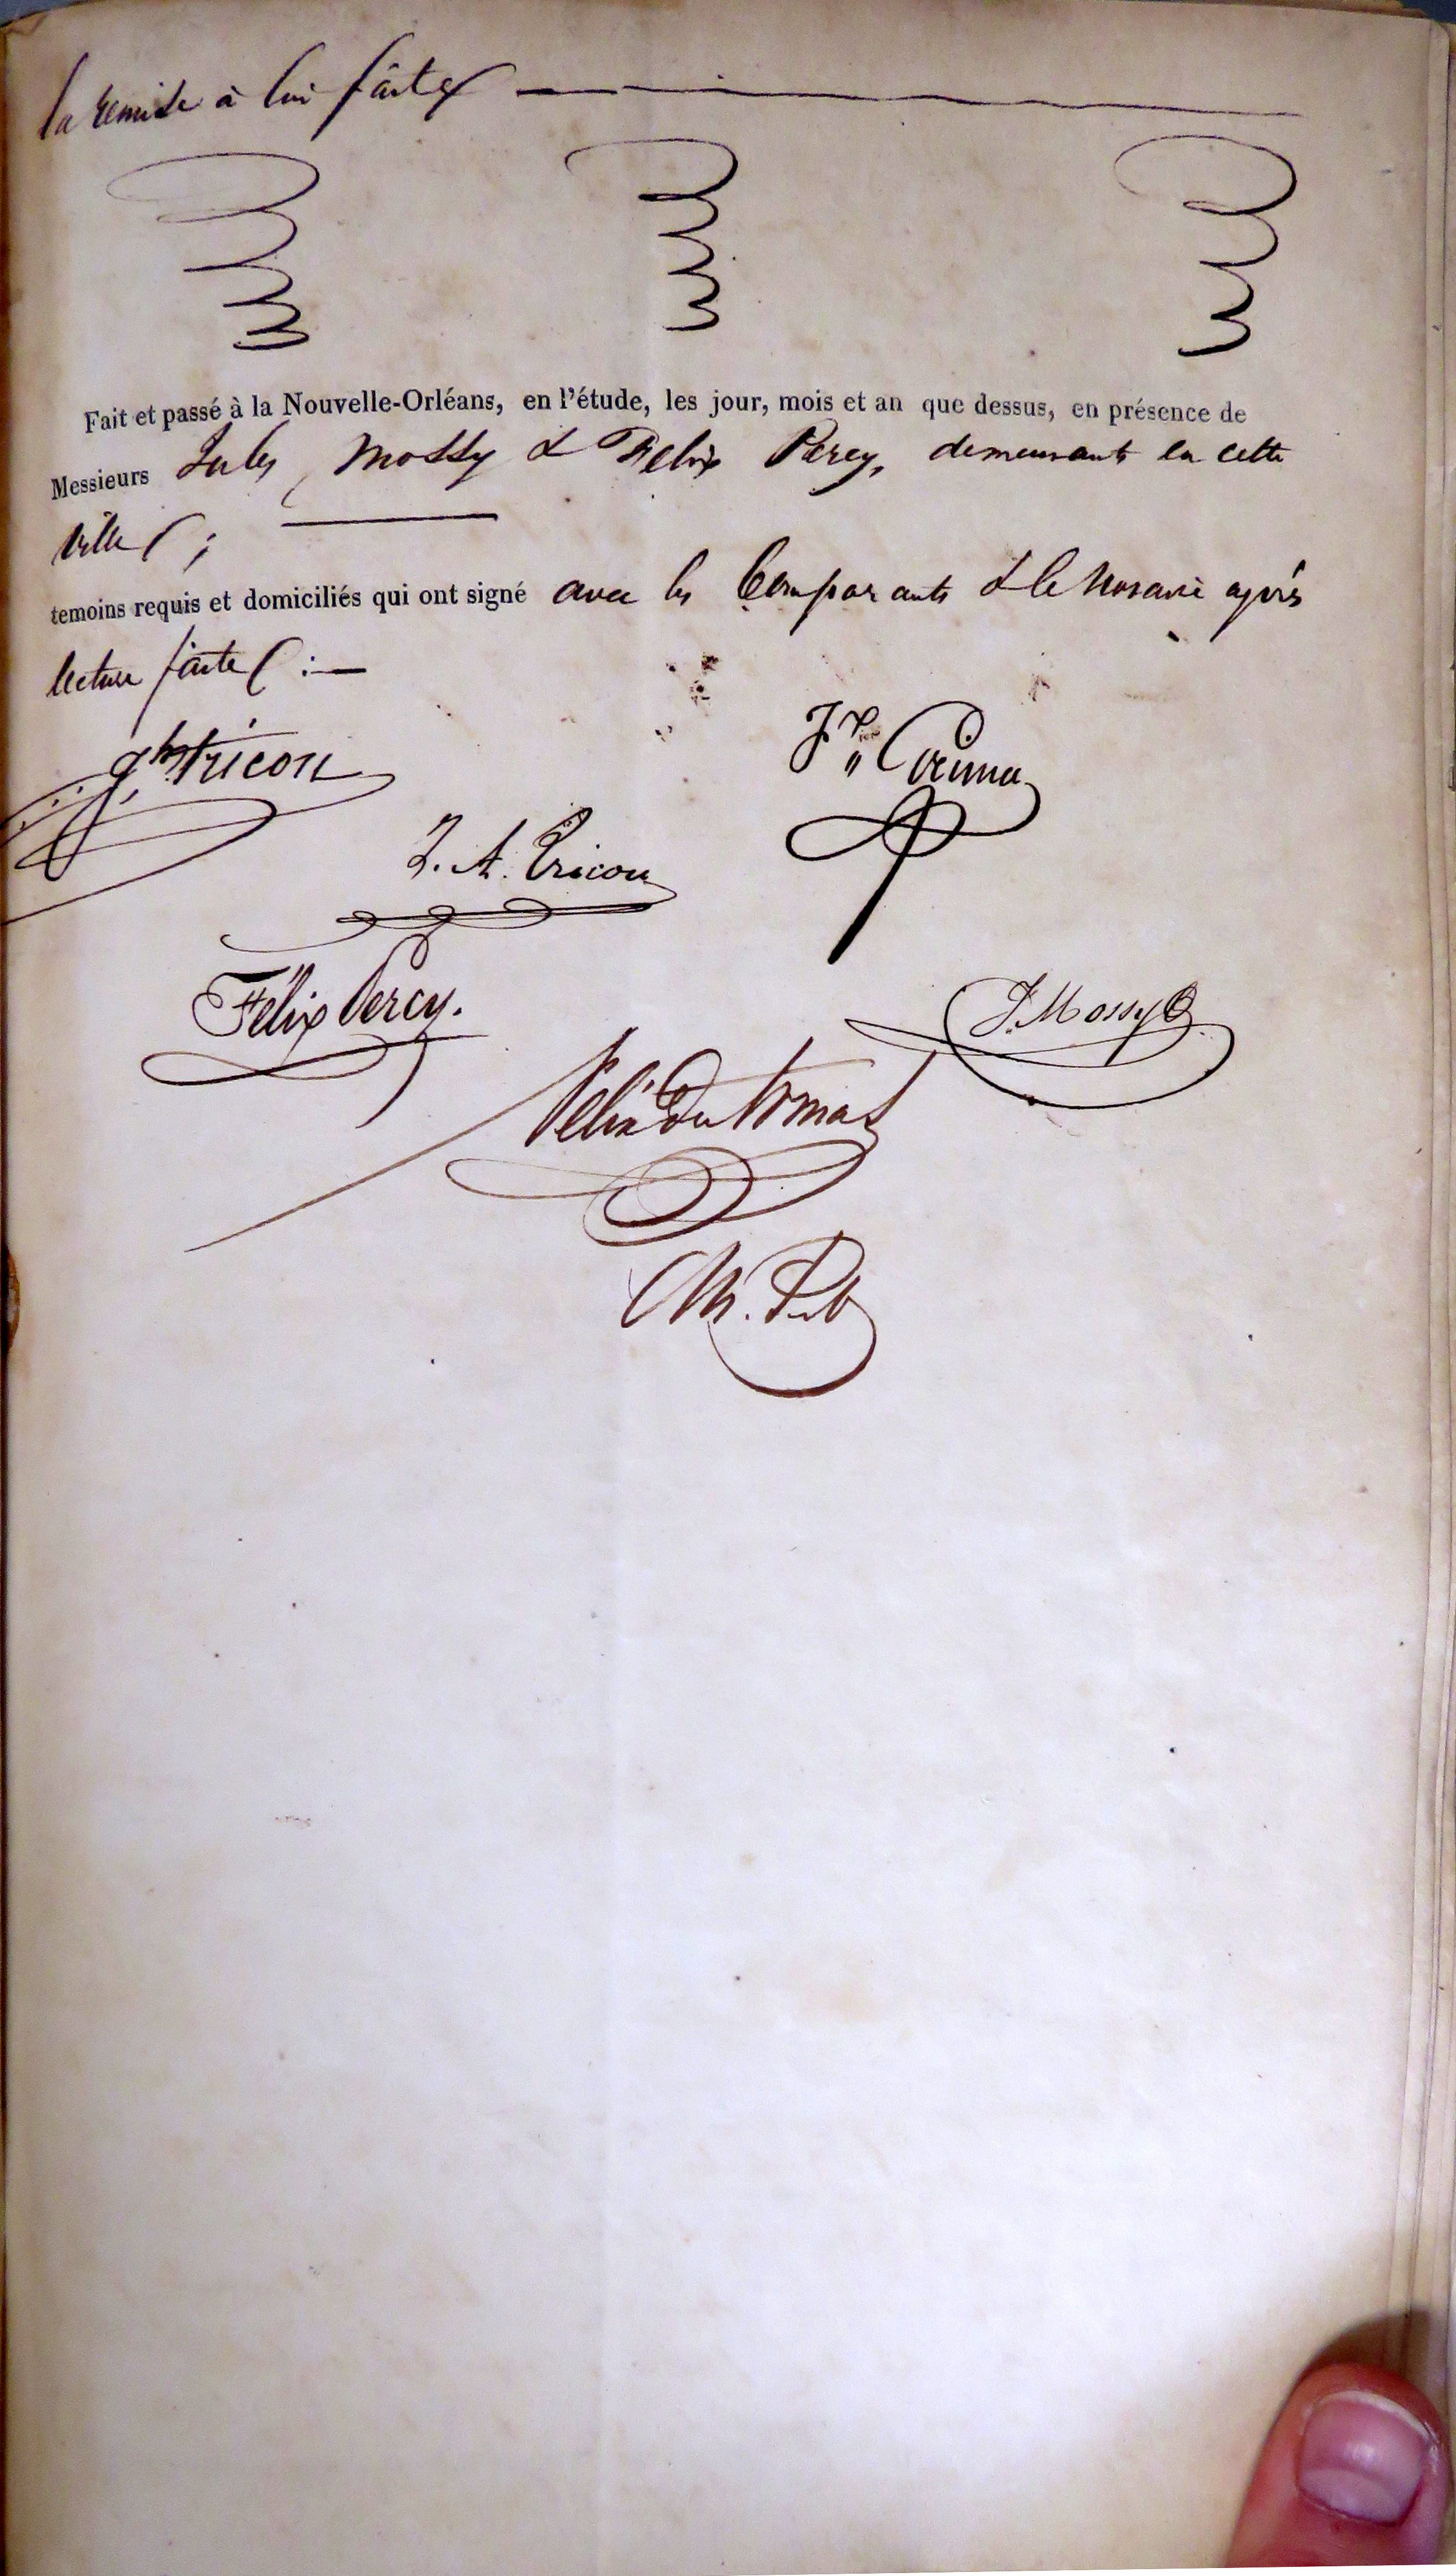 la remise à lui faite
Fait et passé à la Nouvelle-Orléans, en l'étude, les jour, mois et an que dessus, en présence de
Messieurs Jules Mossy & Felix Percy, demeurants en cette
ville ;
temoins requis et domiciliés qui ont signé avec les Comparants & le Notaire après
lecture faite :—
Tricou
J. A. Tricou
Félix Percy.
J. Mossy
Felix
Not. Pub